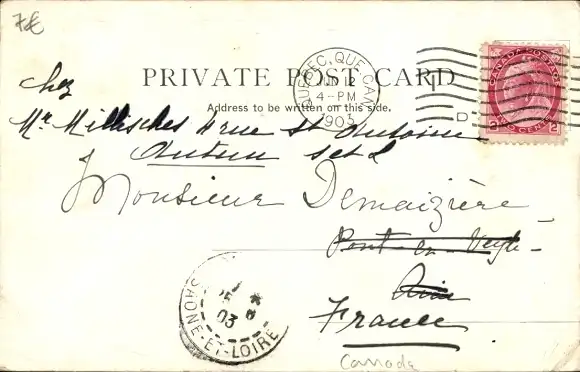 7€
QUEBEC, QUE. CAN.
2
4-PM
1903
PRIVATE POST CARD
Address to be written on this side.
CANADA POSTAGE
2 TWO CENTS 2
chez
Mr 4 rue St Antoine
Autun S et L
Monsieur Demaizière
Pont-de-Veyle
Ain
France
03
SAONE-ET-LOIRE
Canada